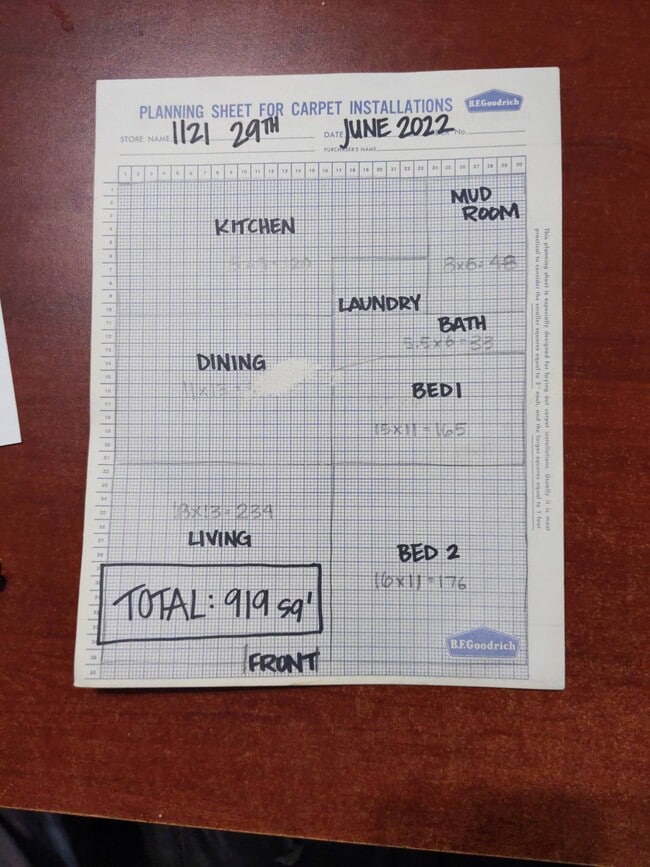 PLANNING SHEET FOR CARPET INSTALLATIONS
B.F.Goodrich
STORE NAME 1121 29TH DATE JUNE 2022 No.
PURCHASER'S NAME
1 2 3 4 5 6 7 8 9 10 11 12 13 14 15 16 17 18 19 20 21 22 23 24 25 26 27 28 29 30
MUD
ROOM
KITCHEN
8x6=48
LAUNDRY
BATH
5.5x6=33
DINING
11x13=
BED1
15x11=165
18x13=234
LIVING
BED 2
16x11=176
TOTAL: 919 sq'
FRONT
B.F.Goodrich
This planning sheet is especially designed for laying out carpet installations. Usually it is most
practical to consider the smaller squares equal to 3" each, and the larger squares equal to 1 foot